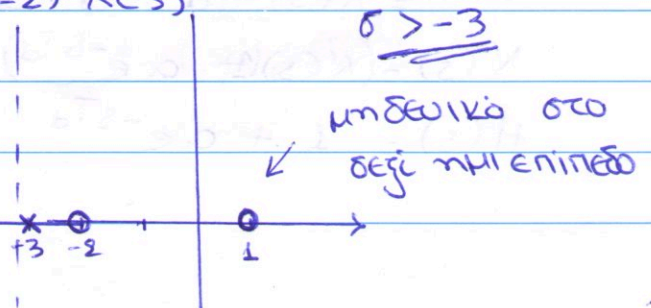 -2) X(s)
σ > -3
μηδενικό στο
δεξί ημιεπίπεδο
+3 -2 1